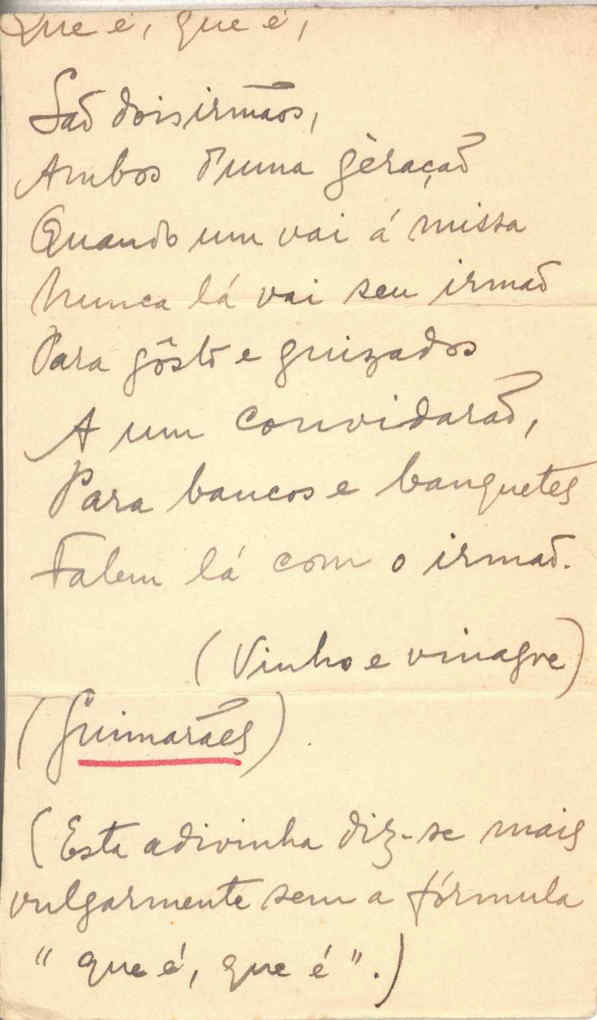 Que é, que é,
São dois irmãos,
Ambos d'uma gèração
Quando um vai á missa
Nunca lá vai seu irmão
Para gôsto e guizados
A um convidarão,
Para bancos e banquetes
Falem lá com o irmão.
(Vinho e vinagre)
(Guimarães)
(Esta adivinha diz-se mais
vulgarmente sem a fórmula
"que é, que é".)